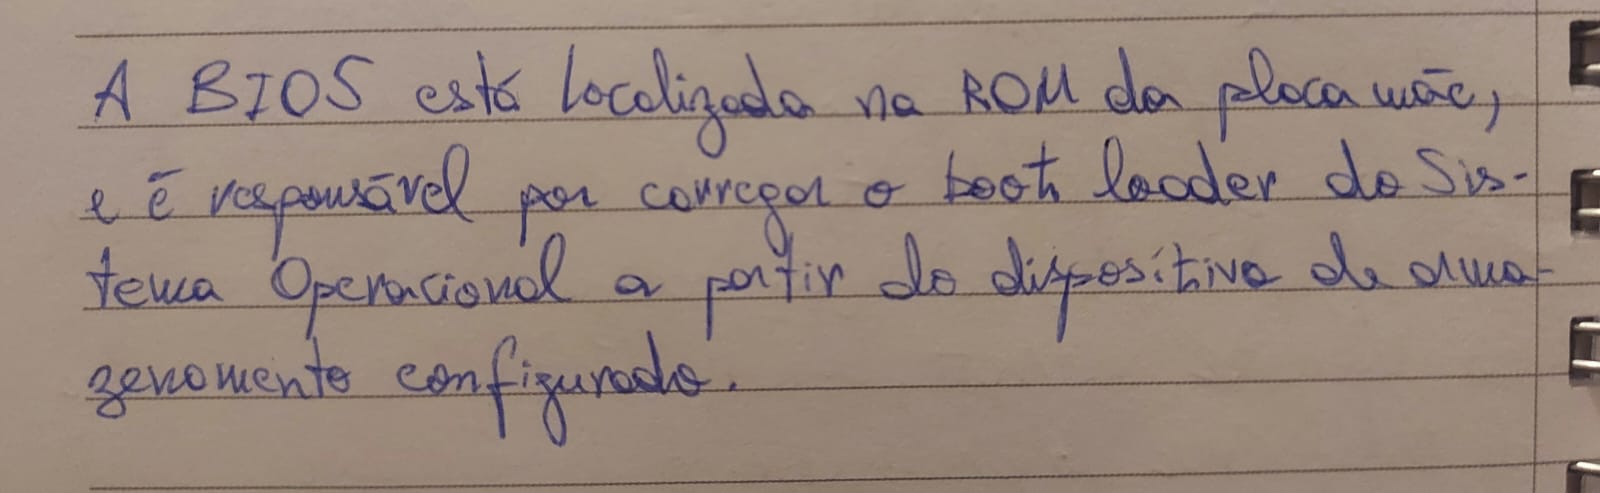 A BIOS está localizada na ROM da placa mãe,
e é responsável por carregar o boot loader do Sis-
tema Operacional a partir do dispositivo de arma-
zenamento configurado.